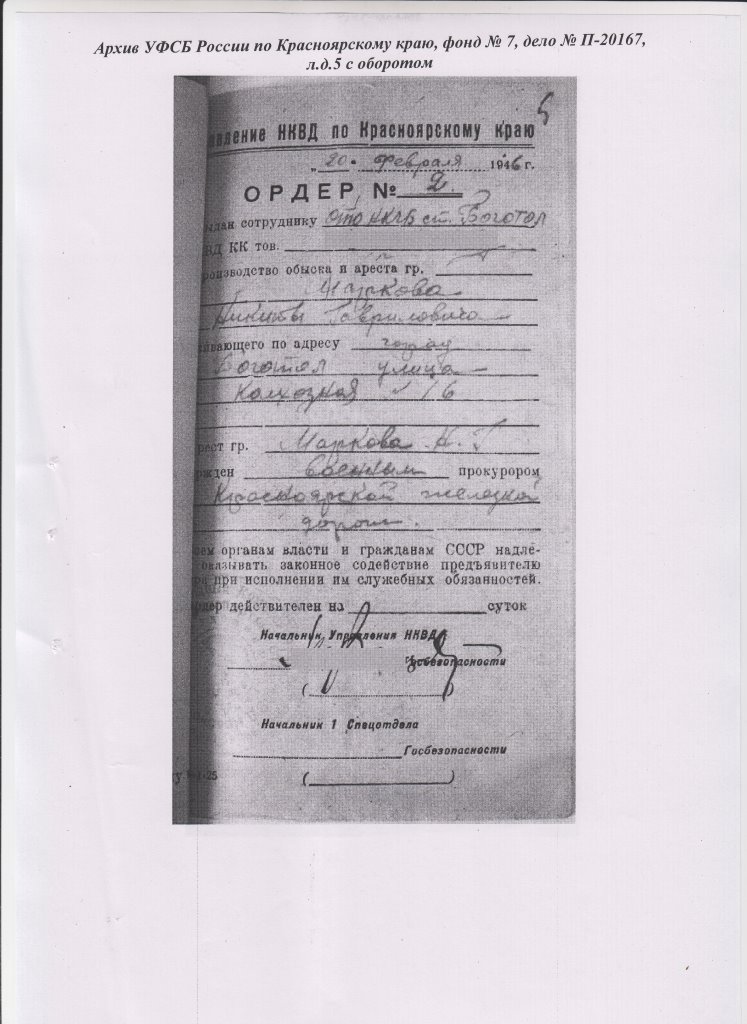 Архив УФСБ России по Красноярскому краю, фонд № 7, дело № П-20167,
л.д.5 с оборотом
5
авление НКВД по Красноярскому краю
„ 20 " февраля 1946 г.
ОРДЕР № 2.
ыдан сотруднику ст. Боготол
ВД КК тов.
роизводство обыска и ареста гр.
Маркова
Никиты Гавриловича
ивающего по адресу город
Боготол улица
Колхозная № 16
рест гр. Маркова Н. Г
ржден военным прокурором
Красноярской железной
дороги.
сем органам власти и гражданам СССР надле-
оказывать законное содействие предъявителю
ра при исполнении им служебных обязанностей.
рдер действителен на суток
Начальник Управления НКВД
Госбезопасности
( )
Начальник 1 Спецотдела
Госбезопасности
( )